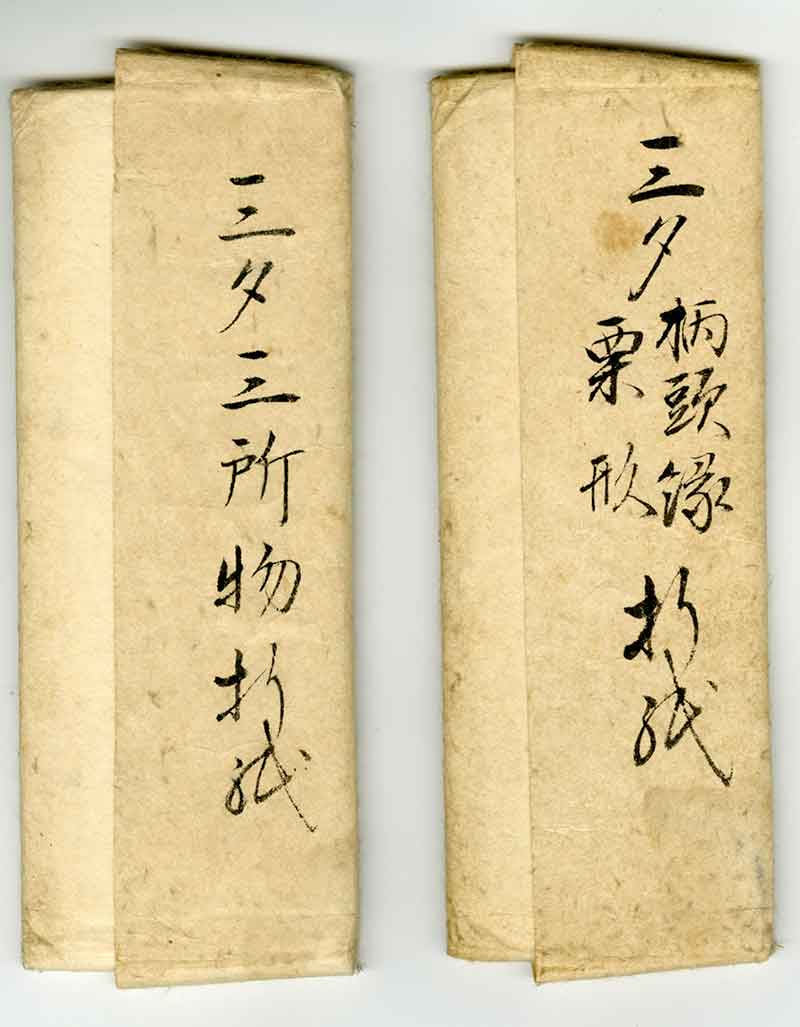 三夕
柄頭縁
栗形
折紙
三夕三所物折紙